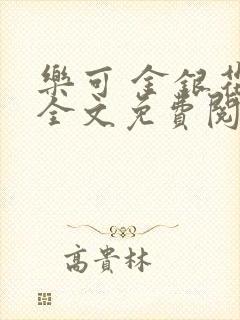 樂可 金銀花
全文免費閱
高貴林